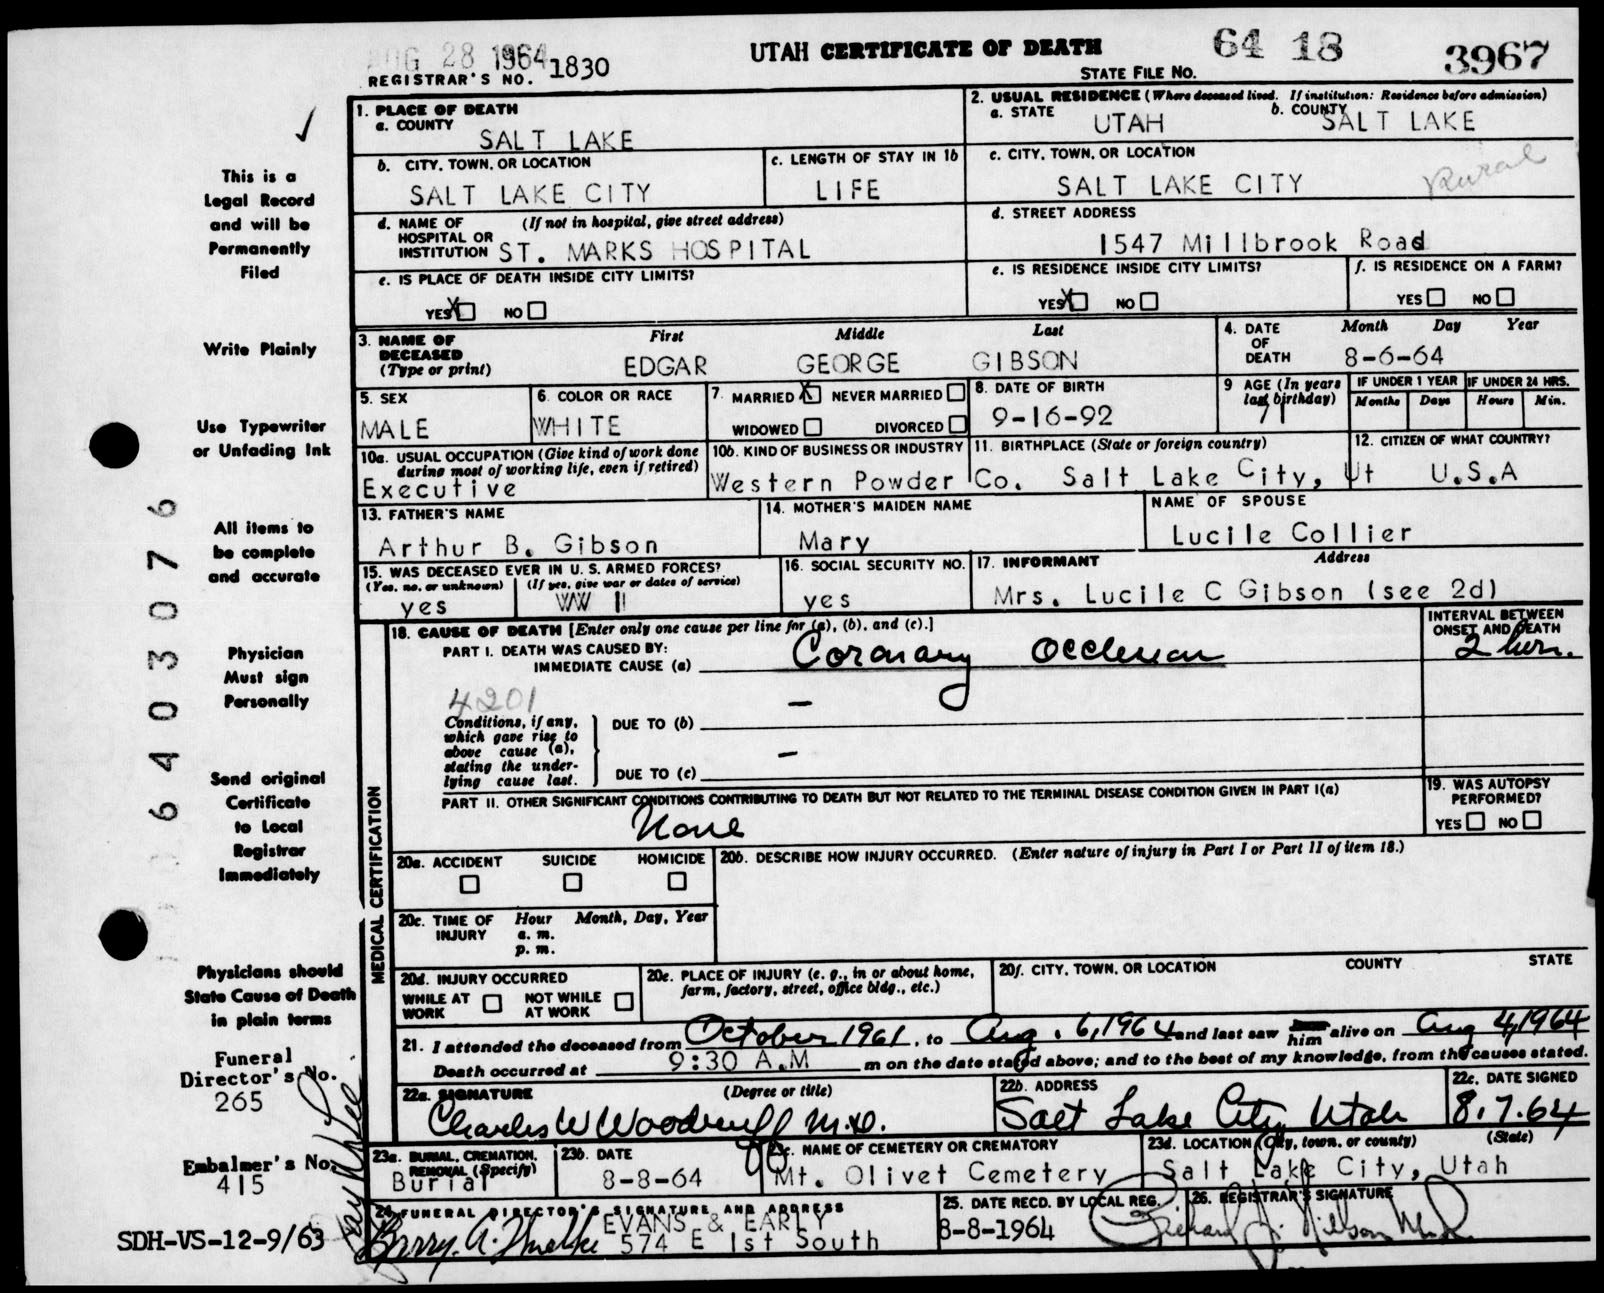 AUG 28 1964
REGISTRAR'S NO. 1830
UTAH CERTIFICATE OF DEATH
STATE FILE NO. 64 18 3967
1. PLACE OF DEATH
a. COUNTY
SALT LAKE
2. USUAL RESIDENCE (Where deceased lived. If institution: Residence before admission)
a. STATE UTAH b. COUNTY SALT LAKE
b. CITY, TOWN, OR LOCATION
SALT LAKE CITY
c. LENGTH OF STAY IN 1b
LIFE
c. CITY, TOWN, OR LOCATION
SALT LAKE CITY Rural
d. NAME OF (If not in hospital, give street address)
HOSPITAL OR
INSTITUTION ST. MARKS HOSPITAL
d. STREET ADDRESS
1547 Millbrook Road
e. IS PLACE OF DEATH INSIDE CITY LIMITS?
YES X NO
e. IS RESIDENCE INSIDE CITY LIMITS?
YES X NO
f. IS RESIDENCE ON A FARM?
YES NO
3. NAME OF
DECEASED
(Type or print)
First Middle Last
EDGAR GEORGE GIBSON
4. DATE
OF
DEATH
Month Day Year
8-6-64
5. SEX
MALE
6. COLOR OR RACE
WHITE
7. MARRIED X NEVER MARRIED
WIDOWED DIVORCED
8. DATE OF BIRTH
9-16-92
9 AGE (In years
last birthday)
71
IF UNDER 1 YEAR
Months Days
IF UNDER 24 HRS.
Hours Min.
10a. USUAL OCCUPATION (Give kind of work done
during most of working life, even if retired)
Executive
10b. KIND OF BUSINESS OR INDUSTRY
Western Powder Co.
11. BIRTHPLACE (State or foreign country)
Salt Lake City, Ut
12. CITIZEN OF WHAT COUNTRY?
U.S.A
13. FATHER'S NAME
Arthur B. Gibson
14. MOTHER'S MAIDEN NAME
Mary
NAME OF SPOUSE
Lucile Collier
15. WAS DECEASED EVER IN U. S. ARMED FORCES?
(Yes, no, or unknown) (If yes, give war or dates of service)
yes WW II
16. SOCIAL SECURITY NO.
yes
17. INFORMANT Address
Mrs. Lucile C Gibson (see 2d)
MEDICAL CERTIFICATION
18. CAUSE OF DEATH [Enter only one cause per line for (a), (b), and (c).]
PART I. DEATH WAS CAUSED BY:
IMMEDIATE CAUSE (a) Coronary Occlusion
INTERVAL BETWEEN
ONSET AND DEATH
2 hrs.
4201
Conditions, if any,
which gave rise to
above cause (a),
stating the under-
lying cause last.
DUE TO (b) —
DUE TO (c) —
PART II. OTHER SIGNIFICANT CONDITIONS CONTRIBUTING TO DEATH BUT NOT RELATED TO THE TERMINAL DISEASE CONDITION GIVEN IN PART I(a)
None
19. WAS AUTOPSY
PERFORMED?
YES NO
20a. ACCIDENT SUICIDE HOMICIDE
20b. DESCRIBE HOW INJURY OCCURRED. (Enter nature of injury in Part I or Part II of item 18.)
20c. TIME OF
INJURY
Hour Month, Day, Year
a. m.
p. m.
20d. INJURY OCCURRED
WHILE AT
WORK
NOT WHILE
AT WORK
20e. PLACE OF INJURY (e. g., in or about home,
farm, factory, street, office bldg., etc.)
20f. CITY, TOWN, OR LOCATION COUNTY STATE
21. I attended the deceased from October 1961, to Aug. 6, 1964 and last saw him alive on Aug 4, 1964
Death occurred at 9:30 A.M m on the date stated above; and to the best of my knowledge, from the causes stated.
22a. SIGNATURE (Degree or title)
Charles W Woodruff M.D.
22b. ADDRESS
Salt Lake City Utah
22c. DATE SIGNED
8.7.64
23a. BURIAL, CREMATION,
REMOVAL (Specify)
Burial
23b. DATE
8-8-64
23c. NAME OF CEMETERY OR CREMATORY
Mt. Olivet Cemetery
23d. LOCATION (City, town, or county) (State)
Salt Lake City, Utah
24. FUNERAL DIRECTOR'S SIGNATURE AND ADDRESS
EVANS & EARLY
574 E 1st South
25. DATE RECD. BY LOCAL REG.
8-8-1964
26. REGISTRAR'S SIGNATURE
This is a
Legal Record
and will be
Permanently
Filed
Write Plainly
Use Typewriter
or Unfading Ink
All items to
be complete
and accurate
Physician
Must sign
Personally
Send original
Certificate
to Local
Registrar
Immediately
Physicians should
State Cause of Death
in plain terms
Funeral
Director's No.
265
Embalmer's No.
415
SDH-VS-12-9/63
640 3076